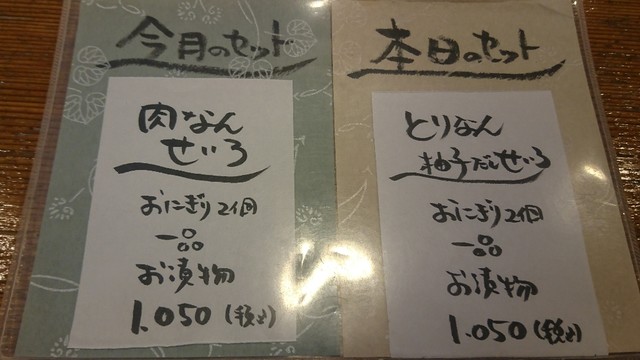 今月のセット
肉なん
せいろ
おにぎり2個
一品
お漬物
1.050(税込)
本日のセット
とりなん
柚子だしせいろ
おにぎり2個
一品
お漬物
1.050(税込)